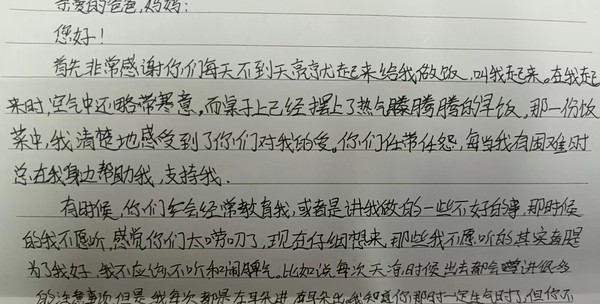 亲爱的爸爸,妈妈:
您好!
首先非常感谢你们每天不到天亮就起来给我做饭,叫我起来。在我起
来时,空气中还略带寒意,而桌子上已经摆上了热气腾腾腾的早饭,那一份饭
菜中,我清楚地感受到了你们对我的爱。你们任劳任怨,每当我有困难时
总在我身边帮助我,支持我.
有时候,你们会经常教育我,或者是讲我做的一些不好的事,那时候
的我不愿听,感觉你们太唠叨了,现在仔细想来,那些我不愿听的其实都是
为了我好,我不应该不听和闹脾气。比如说每次天 时候出去都会 讲很多
的注意事项但是我每次都是左耳朵进 右耳朵出了,我知道你那时一定生气时了,但你不